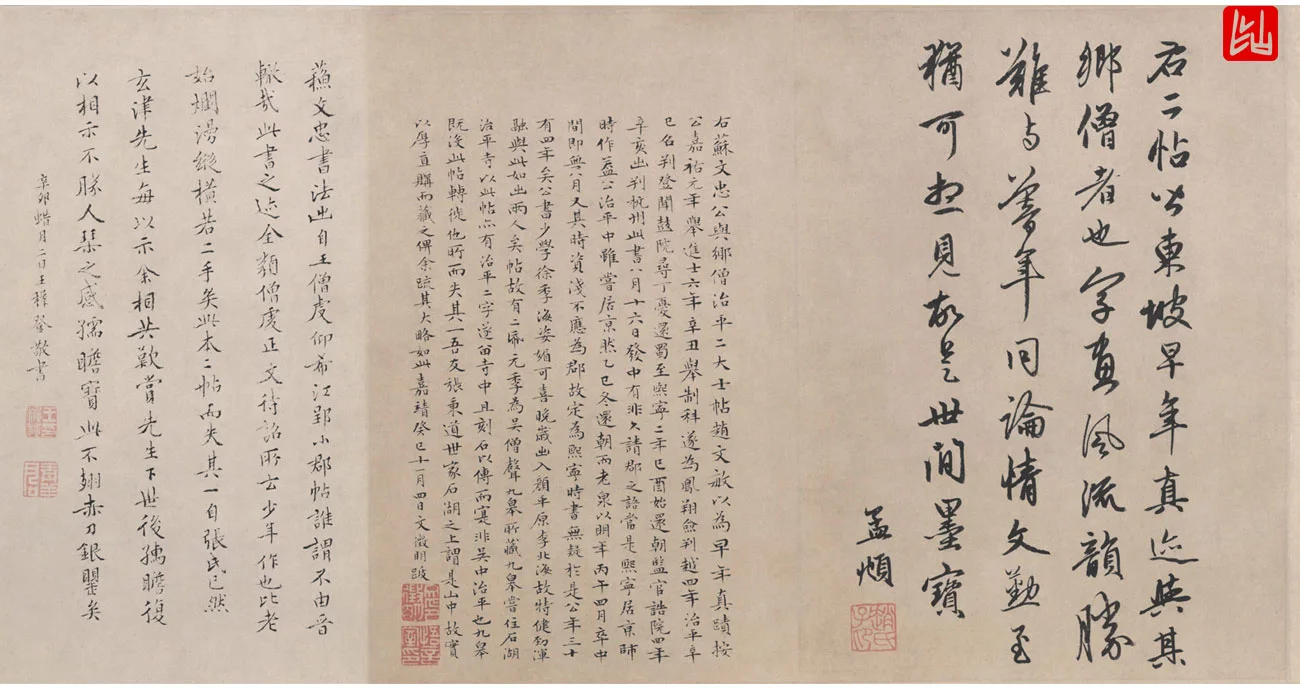 右二帖皆東坡早年真迹與其
鄉僧者也字畫風流韻勝
難与暮年同論情文勤至
猶可想見故是世間墨寶
孟頫
右蘇文忠公與鄉僧治平二大士帖趙文敏以為早年真蹟按
公嘉祐元年舉進士六年辛丑舉制科遂為鳳翔僉判越四年治平辛
巳名判登聞鼓院尋丁憂還蜀至熙寧二年己酉始還朝監官誥院四年
辛亥出判杭州此書八月十六日發中有非久請郡之語當是熙寧居京師
時作蓋公治平中雖嘗居京然乙巳冬還朝而老泉以明年丙午四月卒中
間即無八月又其時資淺不應為郡故定為熙寧時書無疑於是公年三十
有四年矣公書少學徐季海姿媚可喜晚歲出入顏平原李北海故特健勁渾
融與此如出兩人矣帖故有二紙元季為吳僧聲九皋所藏九皋嘗住石湖
治平寺以此帖亦有治平二字遂留寺中且刻石以傳而寔非吳中治平也九皋
既沒此帖轉徙他所而失其一吾友張秉道世家石湖之上謂是山中故實
以厚直購而藏之俾余疏其大略如此嘉靖癸巳十一月四日文徵明跋
蘇文忠書法出自王僧虔仰希江郢小郡帖誰謂不由晉
轍哉此書之迹全類僧虔正文待詔所云少年作也比老
始爛漫縱橫若二手矣此本二帖而失其一自張氏已然
玄津先生每以示余相共歎賞先生下世後孺瞻復
以相示不勝人琴之感孺瞻寶此不翅赤刀銀罌矣
辛卯蜡月一日王穉登敬書